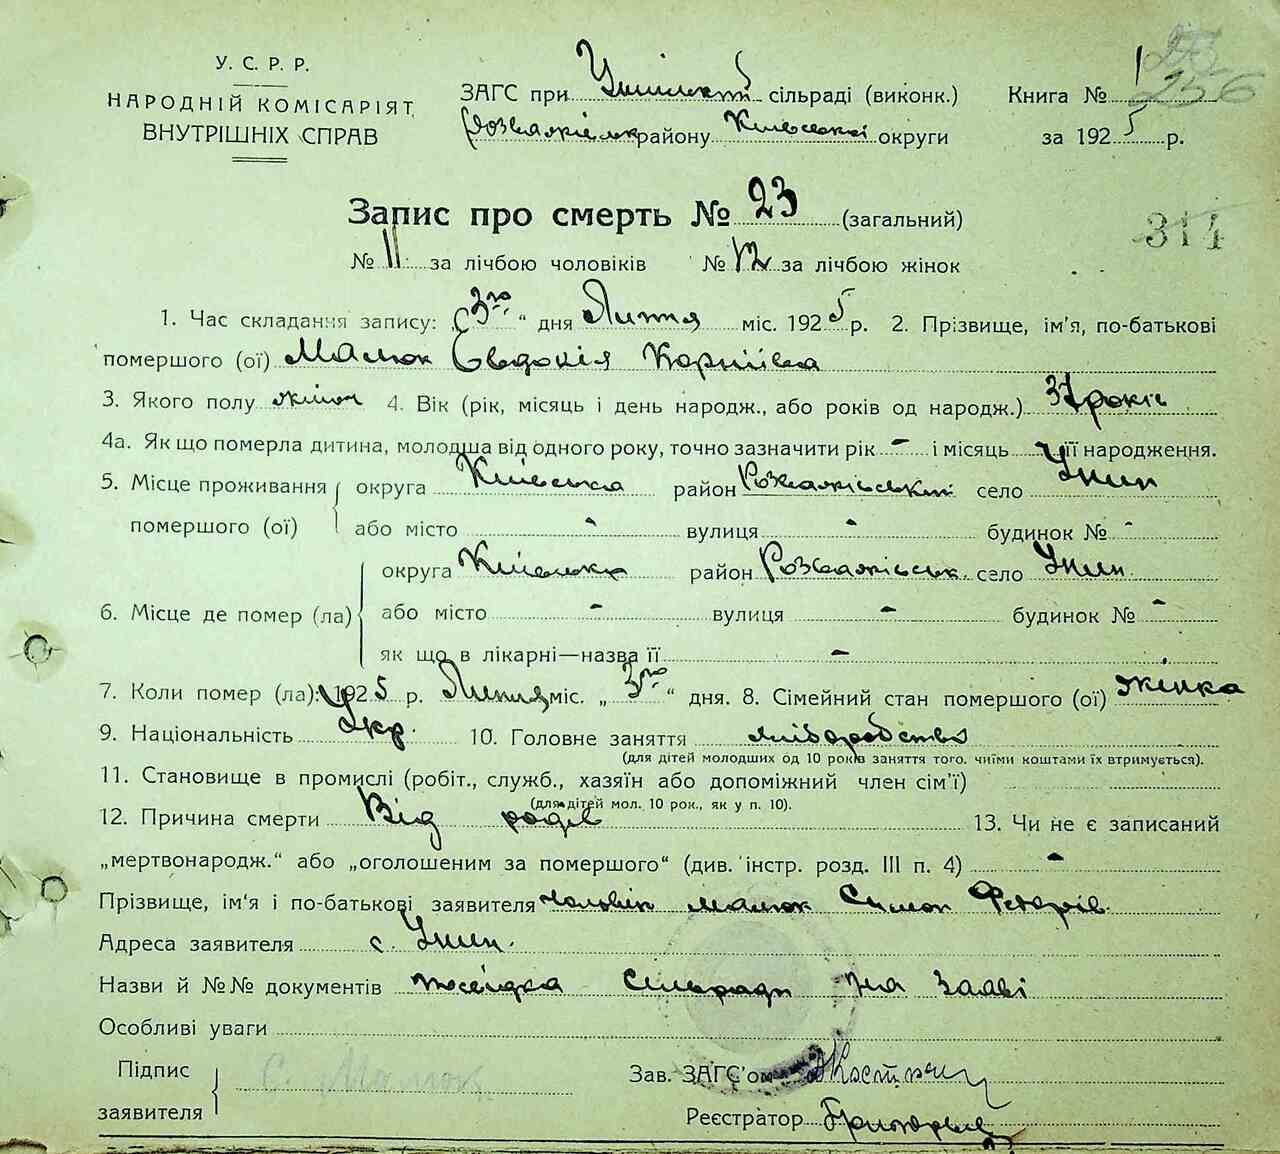 У. С. Р. Р.
НАРОДНІЙ КОМІСАРІЯТ
ВНУТРІШНІХ СПРАВ
ЗАГС при сільраді (виконк.)
району Київської округи
Книга № 1
256
за 1925 р.
Запис про смерть № 23 (загальний)
314
№ 11 за лічбою чоловіків № 12 за лічбою жінок
1. Час складання запису: „3го“ дня Липця міс. 1925 р. 2. Прізвище, ім'я, по-батькові
помершого (ої) Малюк Євдокія Корніївна
3. Якого полу жіноч 4. Вік (рік, місяць і день народж., або років од народж.) 37 років
4а. Як що померла дитина, молодша від одного року, точно зазначити рік - і місяць - її народження.
5. Місце проживання помершого (ої) округа Київська район Розважівський село Унин
або місто - вулиця - будинок № -
6. Місце де помер (ла) округа Київська район Розважівськ. село Унин.
або місто - вулиця - будинок № -
як що в лікарні—назва її -
7. Коли помер (ла): 1925 р. Липця міс. „3го“ дня. 8. Сімейний стан помершого (ої) жінка
9. Національність Укр. 10. Головне заняття хліборобство
(для дітей молодших од 10 років заняття того, чиїми коштами їх втримується).
11. Становище в промислі (робіт., служб., хазяїн або допоміжний член сім'ї)
(для дітей мол. 10 рок., як у п. 10).
12. Причина смерти Від родів 13. Чи не є записаний
„мертвонародж.“ або „оголошеним за помершого“ (див. інстр. розд. III п. 4) -
Прізвище, ім'я і по-батькові заявителя чоловік Малюк Симон
Адреса заявителя с. Унин.
Назви й №№ документів посвідка Сільради на
Особливі уваги
Підпис заявителя С. Малюк
Зав. ЗАГС'ом
Реєстратор